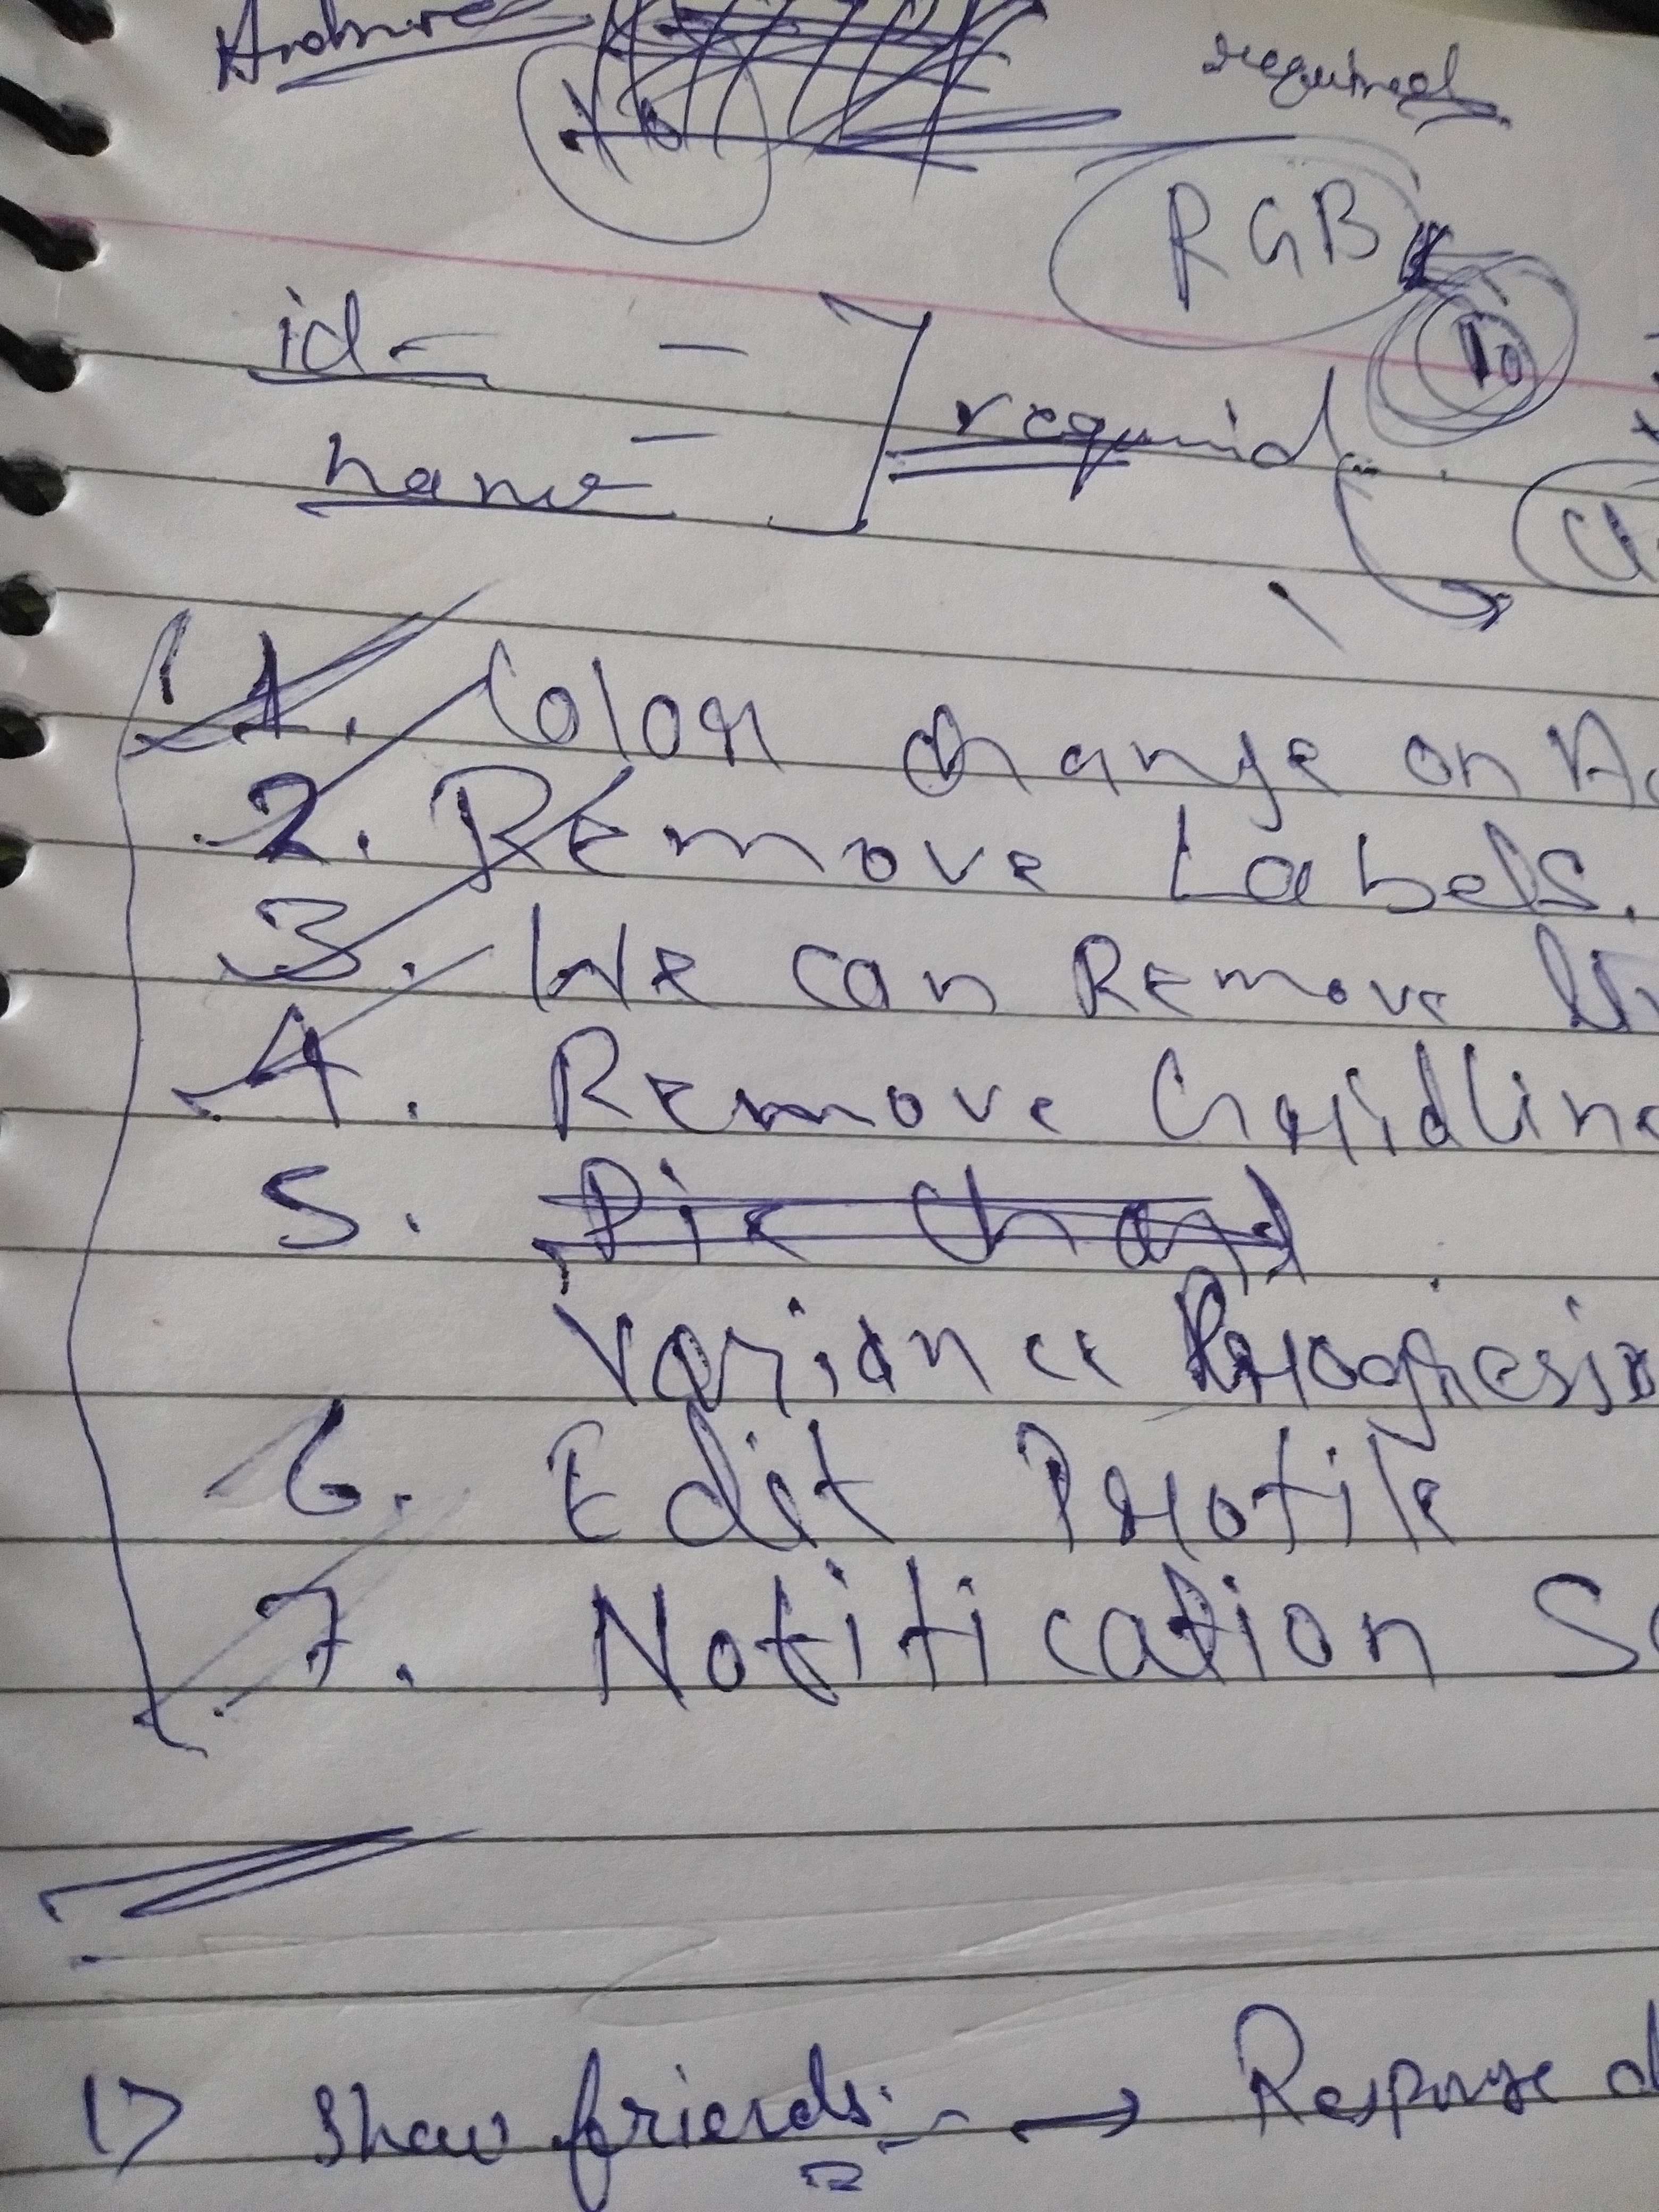 required
RGB
10
id -
name - ] required
1. Color change on
2. Remove Labels.
3. We can Remove
4. Remove Gridline
5. Pie Chart
Variance Progressi
6. Edit Profile
7. Notification
1> Show friends: → Response